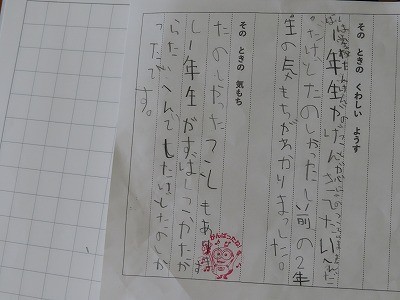 その ときの くわしい ようす
1年生やだんさでたいへん
だけどたのしかった!前の2年
生の気もちがわかりました。
その ときの 気もち
たのしかったこともあれば
し1年生がすばしっこかたか
らたいへんでしたけどたのしか
ったです。
がんばったね!